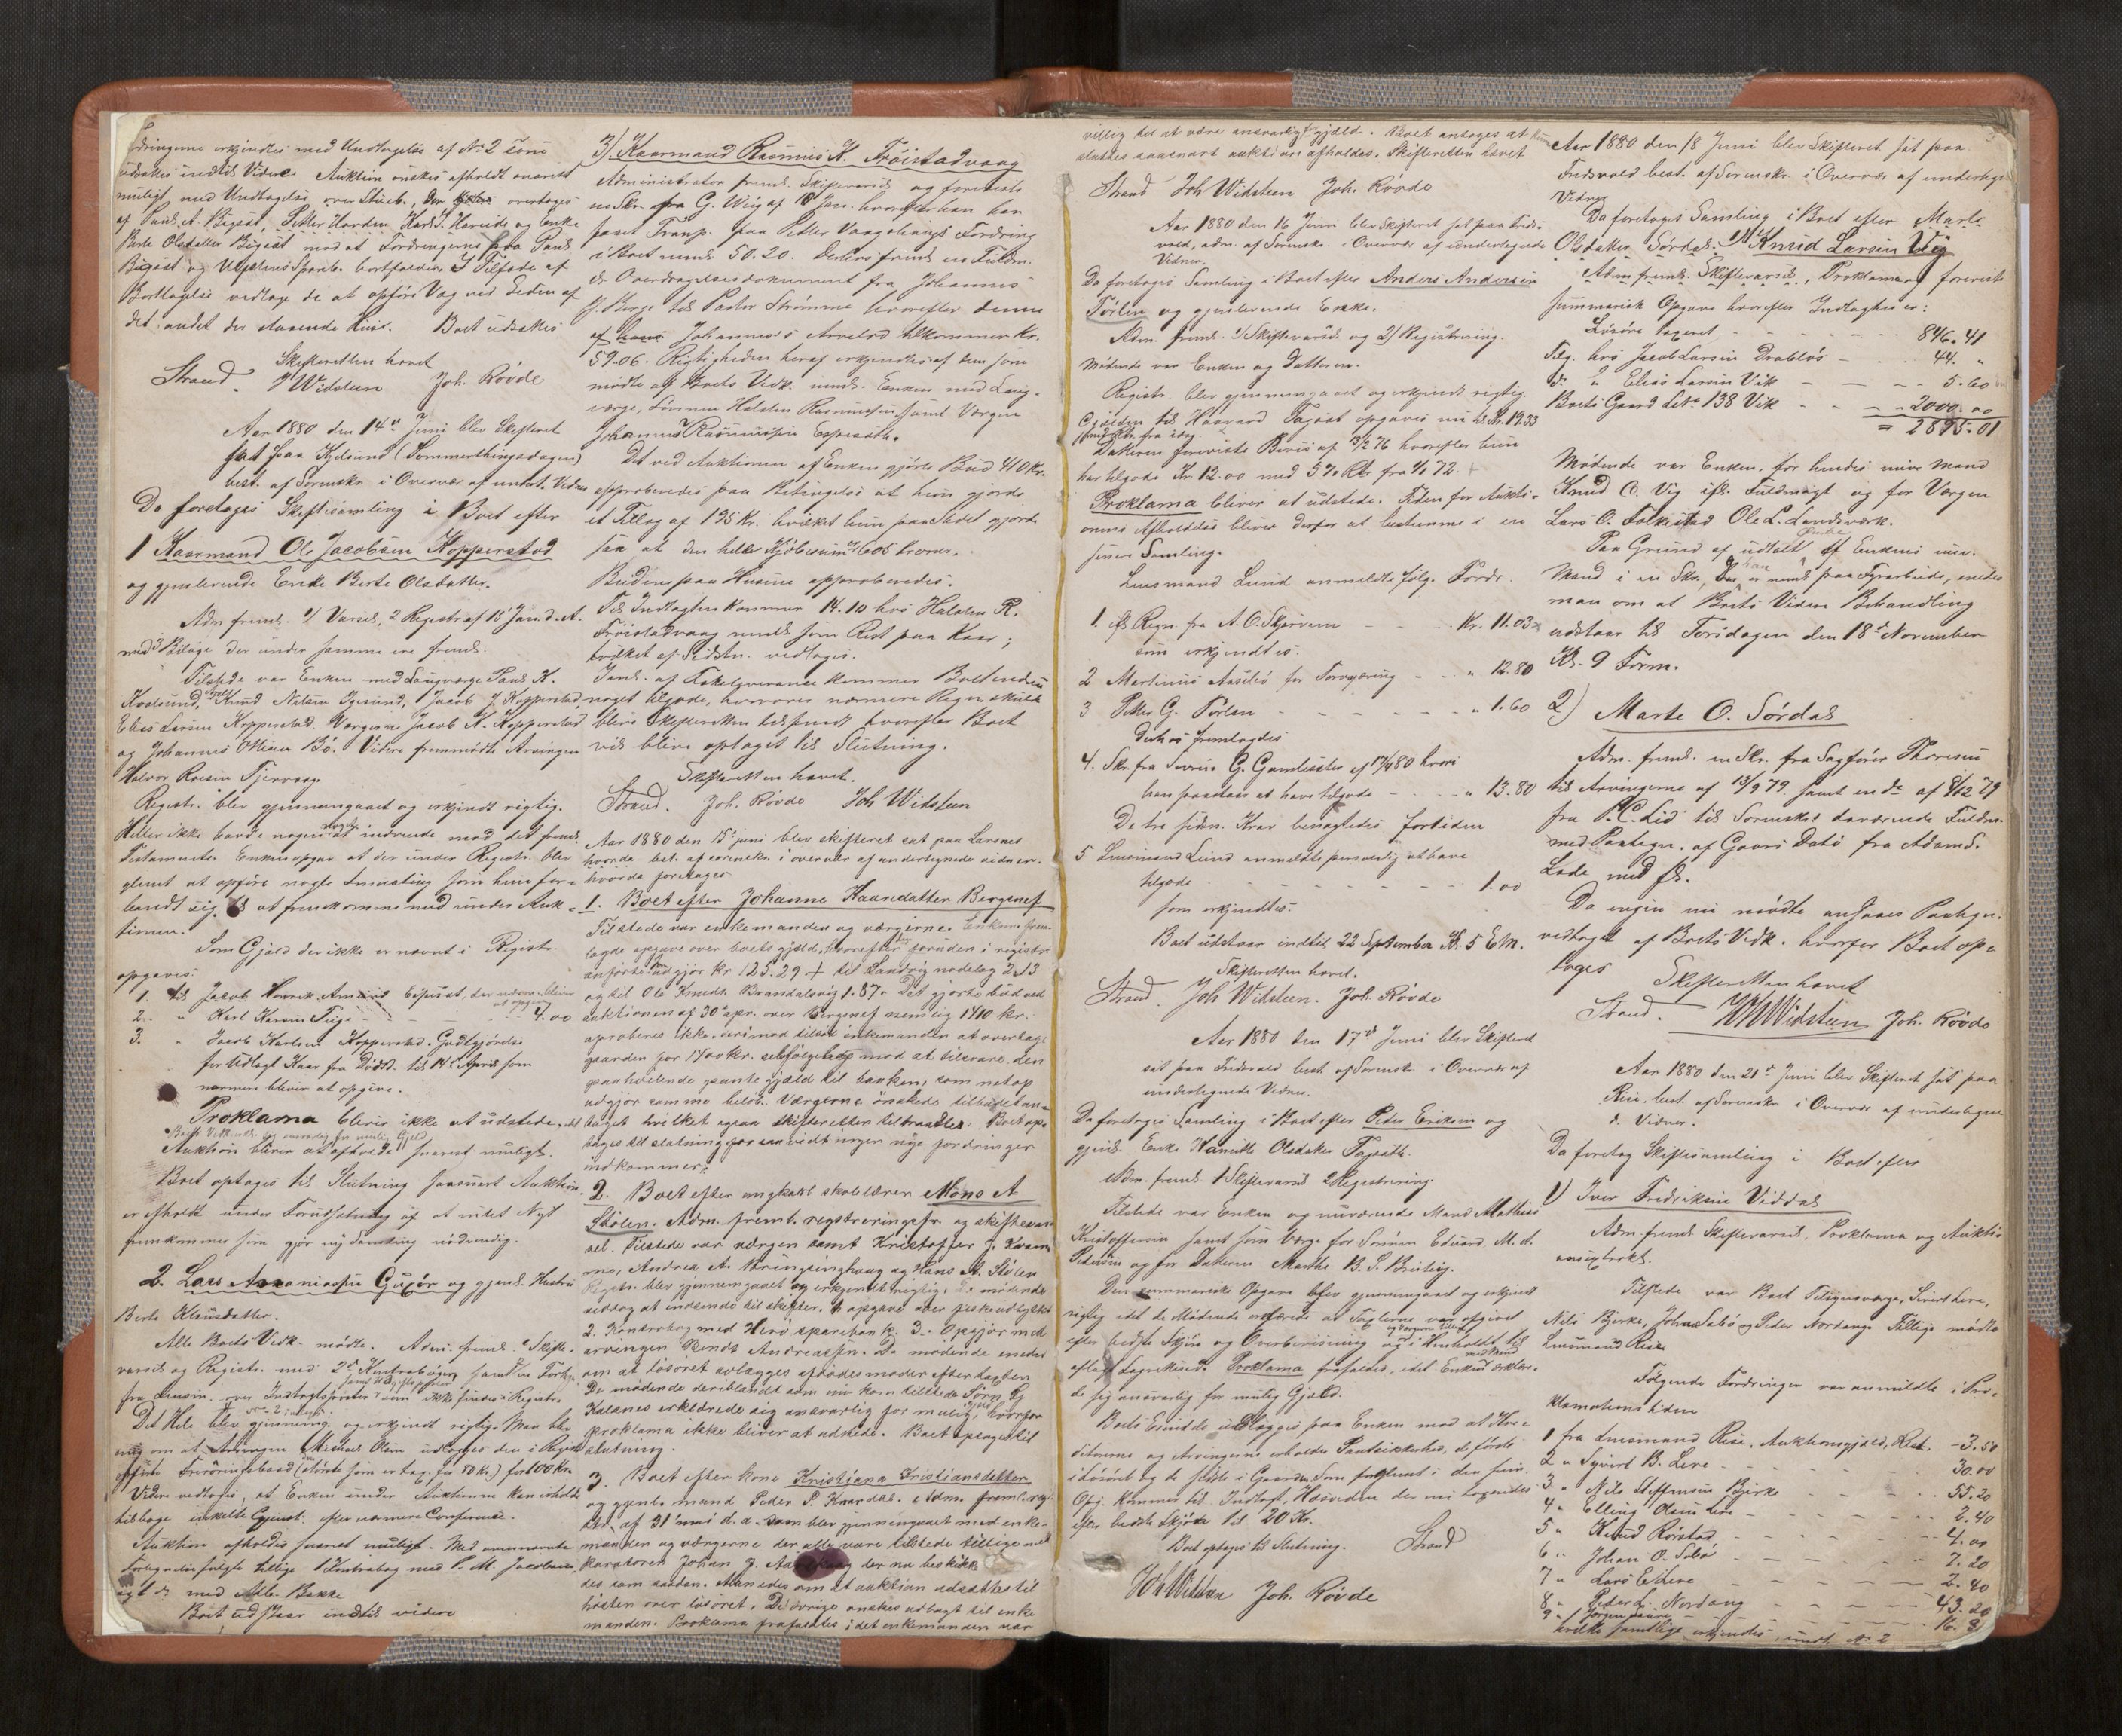 erkjendtes med Undtagelse af No 2 som
udsættes indtil Videre. Auktion ønskes afholdt snarest
muligt med Undtagelse over Stueb., der overtages
af Petter Hardem, og Enke
Berte Olsdatter Bigset mod at Fordringerne fra
bortfalder. I Tilfælde af
Borttagelse vedtoges de at opføre Væg ved Enden af
det andet der staaende Huus. Boet udsættes
Skifteretten hævet
Strand. J Widsteen Joh. Røvde
Aar 1880 den 14de Juni blev Skifteret
sat paa Kjelsund (Sommerthingsdagen)
best. af Sorenskr. i Overvær af undert. Vidner
Da foretoges Skiftesamling i Boet efter
1 Kaarmand Ole Jacobsen Kopperstad
og gjenlevende Enke Berte Olsdatter.
Adm. freml. 1/ Varsel, 2 Registr. af 15 Jan. d. A.
med 3 Bilage der under samme ere freml.
Tilstede var Enken med Laugværge
Knud Nilsen Igesund, Jacob J. Kopperstad,
Elias Larsen Kopperstad. Værgerne Jacob K. Kopperstad
og Johannes Bø. Videre fremmødte Arvingen
Halvor
Registr. blev gjennemgaaet og erkjendt rigtig.
Heller ikke havde nogen noget at indvende mod det freml.
Testamente. Enken opgav at der under Registr. blev
glemt at opføre nogle som hun for-
bandt sig til at fremkomme med under Auk-
tionen.
Som Gjæld der ikke er nævnt i Registr.
opgaves:
1. til Jacob Henrik
2. " Karl 4.00
3. " Jacob Karlsen Kopperstad. Godtgjørelse
for Udlagt Kaar fra Dødsd. til 14 April som
nærmere bliver at opgive.
Proklama bliver ikke at udstede, idet
Auktion bliver at afholde snarest muligt.
Boet optages til Slutning saasnart Auktion
er afholdt under Forudsætning af at intet Nyt
fremkommer som gjør ny Samling nødvendig.
2. Lars Ananiassen Gurør og gjenl. Hustru
Berte Klausdatter.
Alle Boets Vedk. mødte. Adm. freml. Skifte-
varsel og Registr. med 2de Kontrabøger samt en
fra Lensm. over Indtægtsposter som ikke findes i Registr.
Det Hele blev gjennemg. og erkjendt rigtigt. Man blev
enig om at Arvingen Michael Olsen udlægges den i Registr.
for 100 Kr.
Videre vedtoges, at Enken under Auktionen kan erholde
tilbage enkelte Gjenst. efter nærmere Conference.
Auktion afholdes snarest muligt.
fulgte tillige 1 Kontrabog med P. M. Jacobsen
med Adb. Bakke
Boet udstaar indtil videre
3). Kaarmand Rasmus K. Frøistadvaag
Administrator freml. Skiftevarsel og foreviste
en Skr. fra G. Wiig af 10 Jan. hvorefter han har
faaet Transp. paa Petter Vaagshaugs Fordring
i Boet med 50.20. Derhos freml. en Fuldm.
og Overdragelsesdokument fra Johannes
J. Berge til Pastor Strømme hvorefter denne
Johannes's Arvelod tilkommer Kr.
59.06. Rigtigheden heraf erkjendtes af dem som
mødte af Boets Vedk. nemlig Enken med Laug-
værge, Sønnen Halsten Rasmussen samt Værgen
Johannes Rasmussen
Det ved Auktionen af Enken gjorte Bud 410 Kr.
approberedes paa Betingelse at hun gjorde
et Tillæg af 195 Kr. hvilket hun paa Stedet gjorde
saa at den hele Kjøbesum er 605 Kroner.
Budene paa Husene approberedes.
Til Indtægten kommer 14.10 hos Halsten R.
Frøistadvaag nemlig som Rest paa Kaar;
hvilket af Sidstn. vedtoges.
kommer Boet endnu
noget tilgode, hvorover nærmere Regn. skulde
blive Skifteretten tilsendt hvorefter Boet
vil blive optaget til Slutning.
Skifteretten hævet.
Strand. Joh. Røvde Joh Widsteen
Aar 1880 den 15de juni blev skifteret sat paa Larsnes
best. af sorenskr. i overvær af undertegnede vidner.
hvorda foretoges
1. Boet efter Johanne Haansdatter Bergenes
Tilstede var enkemanden og værgerne. Enkem. frem-
lagde opgave over boets gjæld, hvorefter foruden i registr.
anførte udgjør kr 125.29 + til Sandvig nodelag 2.13
og til Ole Knudt. Brandalsvig 1.87. Det gjorte bud ved
auktionen af 30 apr. over Bergenes nemlig 1410 kr.
aproberes ikke, derimod tillod enkemanden at overtage
gaarden for 1700 kr. mod at tilsvare den
paahvilende pantegjæld til banken, som netop
udgjør samme beløb. Værgerne ønskede tilbudet an-
taget hvilket ogsaa skifteretten tiltraadte. Boet op-
tages til slutning for saavidt ingen nye fordringer
indkommer.
2. Boet efter ungkarl skolelærer Mons A
Stølen. Adm. freml. registreringsfr. og skiftevar-
sel. Tilstede var værgen samt Kristoffer J. Kvam-
me, Andrea A. og Hans A. Stølen
Registr. blev gjennemgaaet og erkjendt rigtig. De mødende
vedtog at indsende til skifter. 1 opgave over fiskeudbyttet
2. Kontrabog med Herø sparebank. 3. Opgjør med
arvingen Knut Andreassen. De mødende enedes
om at løsøret udlægges afdødes moder efter taxten
De mødende deriblandt som nu kom tilstede Søren
Kalanes erklærede sig ansvarlig for mulig gjæld, hvorfor
proklama ikke bliver at udstede. Boet optages til
slutning.
3. Boet efter kone Kristiana Kristiansdatter
og gjenl. mand Peder P. Knardal. Adm. freml. reg.
af 31 mai d. a. som blev gjennemgaaet med enke-
manden og værgerne der alle vare tilstede tillige med
kuratoren Johan J. der nu beskikk-
es som saadan. Man enedes om at auktion udsættes til
høsten over løsøret. Det øvrige ønskes udlagt til enke
manden. Proklama frafaldtes idet enkemanden var
villig til at være ansvarlig f gjæld. Boet antages at kunne
sluttes saasnart auktion afholdes. Skifteretten hævet
Strand Joh Widsteen Joh. Røvde
Aar 1880 den 16 Juni blev Skifteret sat paa Freds-
vold, adm. af Sorenskr. i Overvær af undertegnede
Vidner.
Da foretoges Samling i Boet efter Anders Andersen
Pørlen og gjenlevende Enke.
Adm. freml. 1/ Skiftevarsel og 2/ Registrering.
Mødende var Enken og Datteren.
Registr. blev gjennemgaaet og erkjendt rigtig.
Gjælden til Haavard opgaves nu til Kr. 19.33
med Rtr. fra idag.
Datteren foreviste Bevis af 13/2 76 hvorefter hun
har tilgode Kr. 12.00 med 5 % Rtr fra 1/1 72.
Proklama bliver at udstede. Tiden for Aukti-
onens Afholdelse bliver derfor at bestemme i en
senere Samling.
Lensmand Lund anmeldte følg. Fordr.
1. ifl. Regn. fra A. O. Skjervem - - Kr. 11.03
som erkjendtes.
2 Martinus Aaslid for Torvgjæring - - " 12.80
3 Petter G. Pørlen - - - - " 1.60
derhos fremlagdes
4. Skr. fra Severin G. Gamlesæter af 17/4 80 hvori
han paastaar at have tilgode - - - " 13.80
De tre sidstn. Krav benægtedes fortiden
5 Lensmand Lund anmeldte personlig at have
tilgode - - - - 1.00
som erkjendtes.
Boet udstaar indtil 22 September Kl. 5 Em.
Skifteretten hævet.
Strand. Joh Widsteen. Joh. Røvde
Aar 1880 den 17de Juni blev Skifteret
sat paa Fredsvold best. af Sorenskr. i Overvær af
undertegnede Vidner.
Da foretoges Samling i Boet efter Peder Eriksen og
gjenl. Enke Olsdatter
Adm. freml. 1 Skiftevarsel 2 Registrering.
Tilstede var Enken og nuværende Mand Mathias
Kristoffersen samt som Værge for Sønnen Edvard M. A.
Pedersen og for Datteren Marthe B. S.
Den summariske Opgave blev gjennemgaaet og erkjendt
rigtig idet de Mødende erklærede at Faglerne var opgivet
efter bedste Skjøn og Overbevisning og i Henhold til
aflagt Proklama frafaldes, idet Enken med Mand erklæ-
de sig ansvarlig for mulig Gjæld.
Boets Eiendele udlægges paa Enken mod at Kre-
ditorerne og Arvingerne erholder Pantsikkerhed, de første
i Løsøret og de sidste i Gaarden. Som forglemt i den sum.
Opg. kommer til Indtægt, der nu taxeredes
efter bedste Skjøn til 20 Kr.
Boet optages til Slutning. Strand
Joh Widsteen Joh. Røvde
Aar 1880 den 18 Juni blev Skifteret sat paa
Fredsvold best. af Sorenskr. i Overvær af undertegn.
Vidner
Da foretoges Samling i Boet efter Marte
Olsdatter Sørdal. 1) Knud Larsen Vig
Adm. freml. Skiftevarsel, Proklama og foreviste
summarisk Opgave hvorefter Indtægten er:
Løsøre taxeret - - - - 846.41
Tilg. hos Jacob Larsen Drabløs - - 44. "
do. " Elias Larsen Vik - - - 5.60
Boets Gaard Litr 138 Vik - - 2000.00
= 2895.01
Mødende var Enken, for hendes nuv. Mand
Knud O. Vig ifl. Fuldmagt og for Værgen
Lars O. Folkestad Ole L. Landsværk.
Paa Grund af udtalt Ønske af Enkens nuv.
Mand i en Skr. han er paa Fyrarbeide, enedes
man om at Boets Videre Behandling
udstaar til Torsdagen den 18de November
Kl. 9 Form.
2) Marte O. Sørdal
Adm. freml. en Skr. fra Sagfører Thoresen
til Arvingerne af 13/9 79 samt en do af 8/12 79
fra P. C. Lid til Sorenskr. daværende Fuldm.
med Paategn. af Gaars Dato fra Adams.
Lade med fl.
Da ingen nu mødte ansaaes Paategn.
vedtaget af Boets Vedk. hvorfor Boet op-
toges Skifteretten hævet
Strand. Joh Widsteen Joh. Røvde
Aar 1880 den 21de Juni blev Skifteret sat paa
Rise best. af Sorenskr. i Overvær af undertegne-
de Vidner.
Da foretog Skiftesamling i Boet efter
1) Iver Fredriksen Viddal
Adm. freml. Skiftevarsel, Proklama og Aukti-
onsextrakt.
Tilstede var Boet Tilsynsværge, Sivert Lere,
Nils Bjerke, Johan Sebø og Peder Nordang. Tillige mødte
Lensmand Rise
Følgende Fordringer var anmeldte i Pro-
klamationstiden
1 fra Lensmand Rise, Auktionsgjæld, Rest. - 3.50
2 " Syvert B. Lere - - - 30.00
3 " Nils Steffensen Bjerke - - - 55.20
4 " Elling Olsen Lere - - - 2.40
5 " Knud Rørstad - - - 4.00
6 " Johan O. Sebø - - - 7.20
7 " Lars E Lere - - - 2.40
8 " Peder L. Nordang - - - 43.20
9 " Jørgen - - - 16.8
hvilke samtlige erkjendtes, undt. No 2